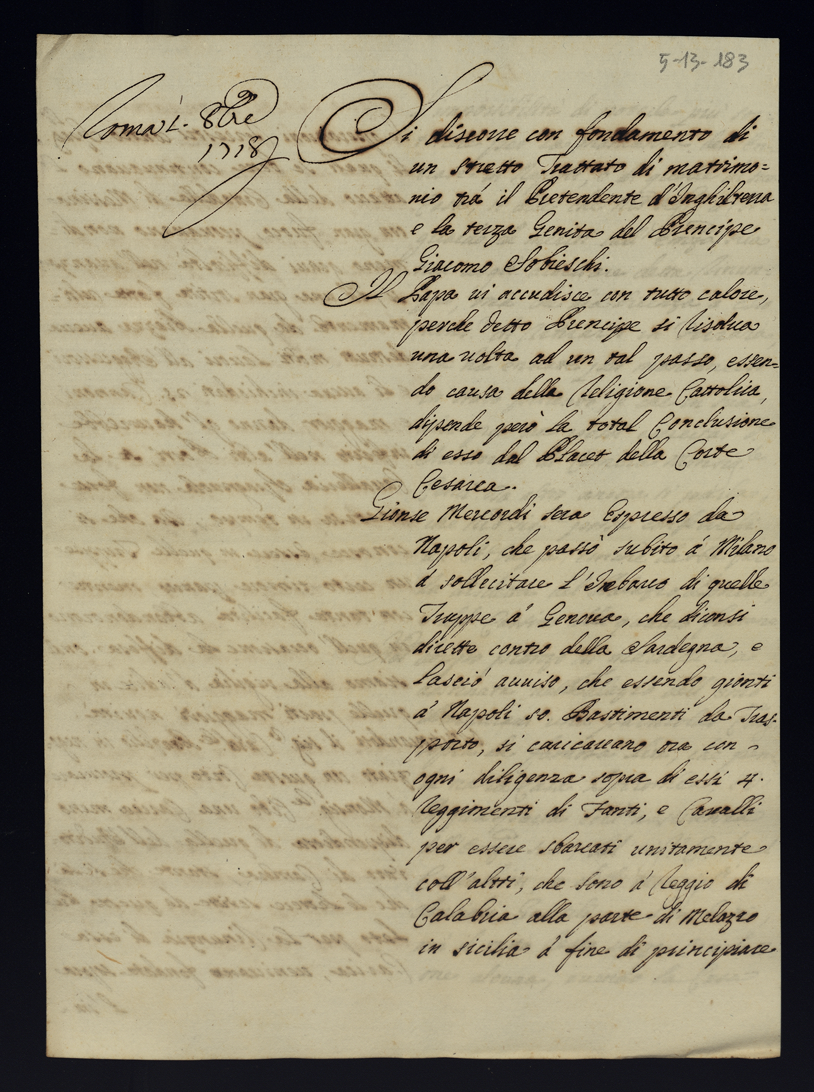 5-13-183
Roma 1. 8bre
1718
Si discorre con fondamento di
un stretto Trattato di matrimo=
nio trà il Pretendente d'Inghilterra
e la terza Genita del Prencipe
Giacomo Sobieschi.
Il Papa vi accudisce con tutto calore,
perche detto Prencipe si risolva
una volta ad un tal passo, essen=
do causa della Religione Cattolica,
dipende però la total Conclusione
di esso dal Placet della Corte
Cesarea.
Gionse Mercordì sera Espresso da
Napoli, che passò subito à Milano
à sollecitare l'Inbarco di quelle
Truppe à Genova, che diconsi
dirette contro della Sardegna, e
lasciò avviso, che essendo gionti
à Napoli 50. Bastimenti da Tras=
porto, si caricavano ora con
ogni diligenza sopra di essi 4.
Reggimenti di Fanti, e Cavalli
per essere sbarcati unitamente
coll'altri, che sono à Reggio di
Calabria alla parte di Melazzo
in Sicilia à fine di principiare